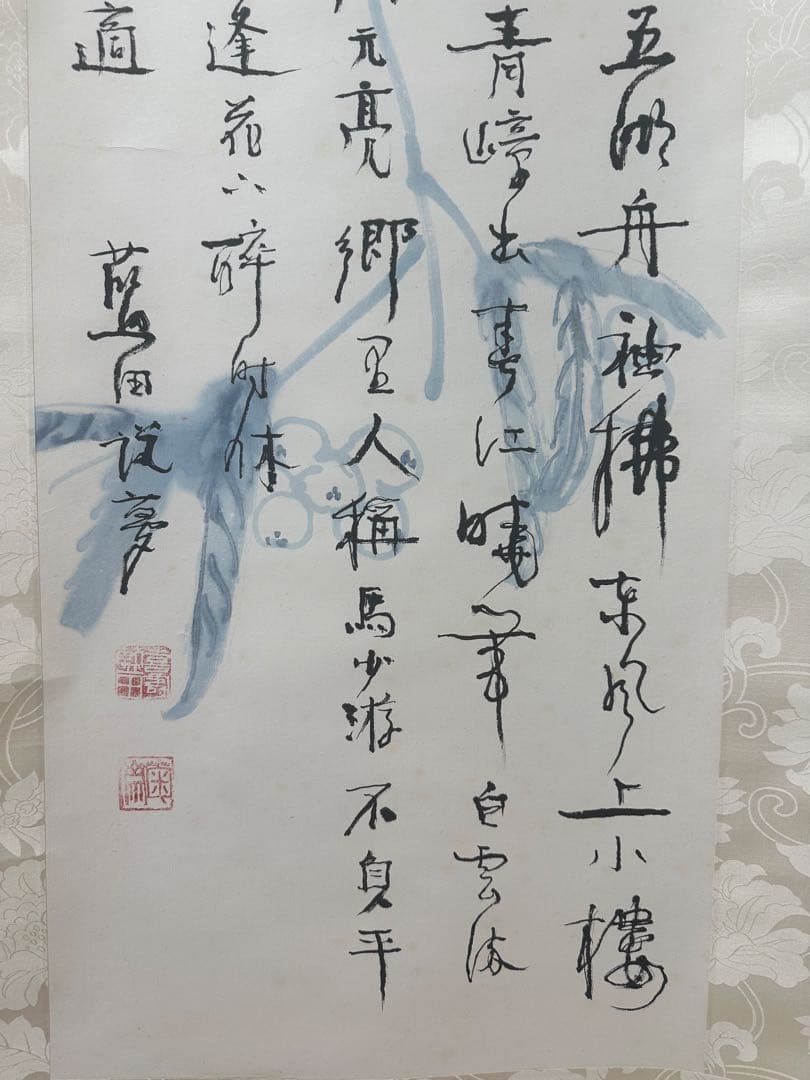 五湖舟袖拂东風上小樓
青嶂出春江曉白雲流
元亮鄉里人稱馬少游不負平
逢花醉时休
適
藍田说夢